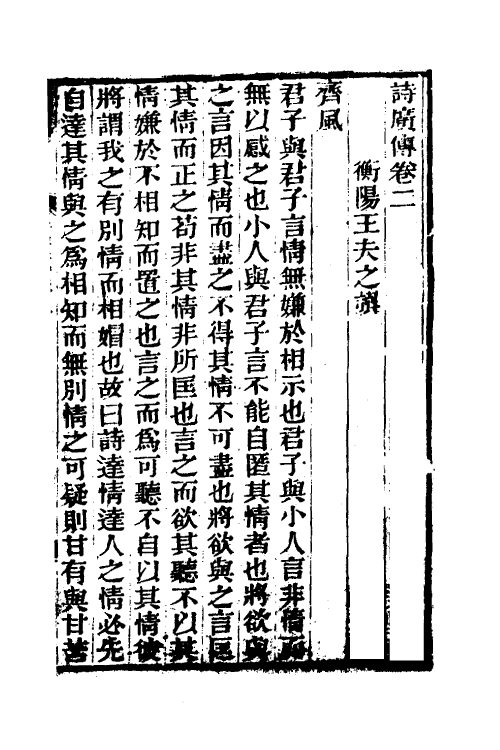 詩廣傳卷二
衡陽王夫之譔
齊風
君子與君子言情無嫌於相示也君子與小人言非情而
無以感之也小人與君子言不能自匿其情者也將欲與
之言因其情而盡之不得其情不可盡也將欲與之言匡
其情而正之苟非其情非所匡也言之而欲其聽不以其
情嫌於不相知而置之也言之而爲可聽不自以其情彼
將謂我之有別情而相媢也故曰詩達情達人之情必先
自達其情與之爲相知而無別情之可疑則甘有與甘苦